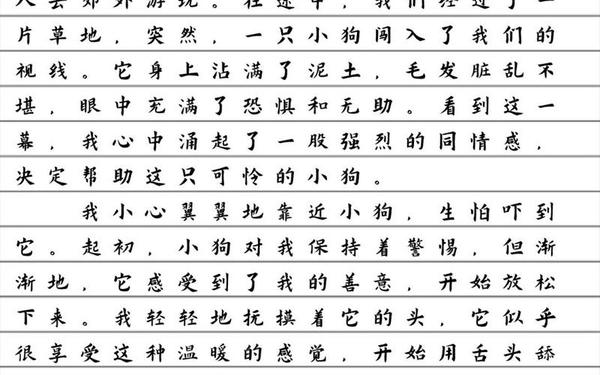 人去郊外游玩。在途中，我们经过了一
片草地，突然，一只小狗闯入了我们的
视线。它身上沾满了泥土，毛发脏乱不
堪，眼中充满了恐惧和无助。看到这一
幕，我心中涌起了一股强烈的同情感，
决定帮助这只可怜的小狗。
我小心翼翼地靠近小狗，生怕吓到
它。起初，小狗对我保持着警惕，但渐
渐地，它感受到了我的善意，开始放松
下来。我轻轻地抚摸着它的头，它似乎
很享受这种温暖的感觉，开始用舌头舔